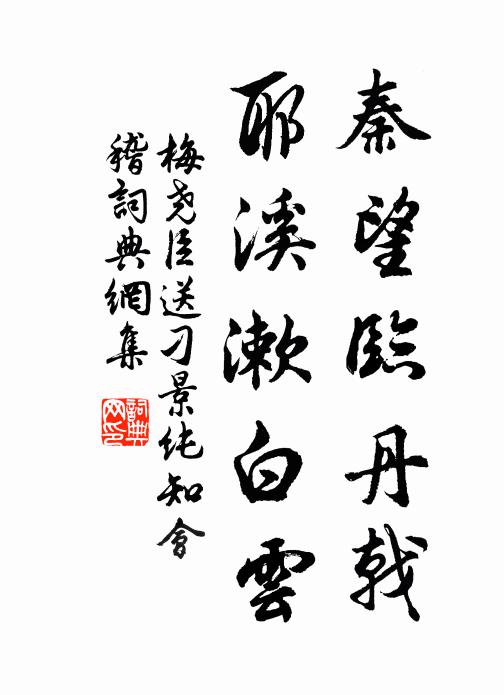 秦望臨丹戟
耶溪漱白雲
梅堯臣送刁景純知會
稽詞典網集
詞典
网印